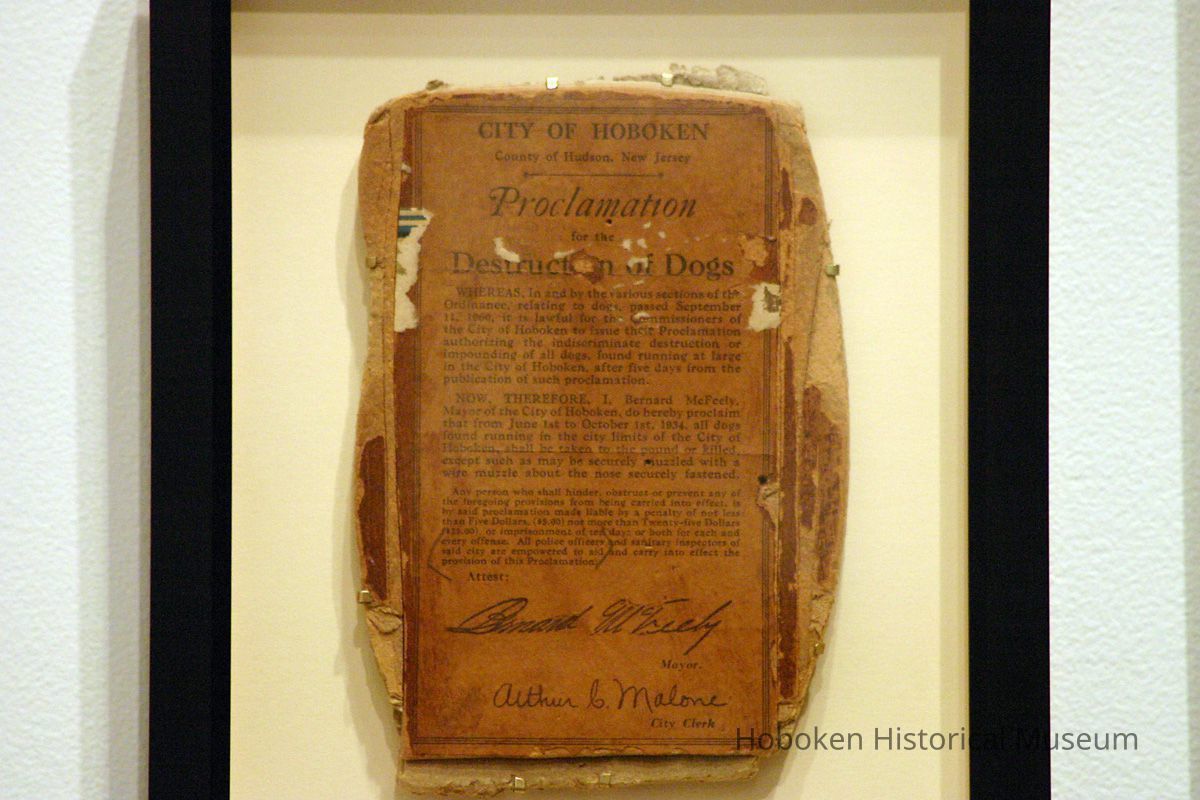 CITY OF HOBOKEN
County of Hudson, New Jersey
Proclamation
for the
Destruction of Dogs
WHEREAS, In and by the various sections of the
Ordinance, relating to dogs, passed September
11, it is lawful for the Commissioners of
the City of Hoboken to issue their Proclamation
authorizing the indiscriminate destruction or
impounding of all dogs, found running at large
in the City of Hoboken, after five days from the
publication of such proclamation.
NOW, THEREFORE, I, Bernard McFeely,
Mayor of the City of Hoboken, do hereby proclaim
that from June 1st to October 1st, 1934, all dogs
found running in the city limits of the City of
Hoboken, shall be taken to the pound or killed,
except such as may be securely muzzled with a
wire muzzle about the nose securely fastened.
Any person who shall hinder, obstruct or prevent any of
the foregoing provisions from being carried into effect, is
by said proclamation made liable by a penalty of not less
than Five Dollars, ($5.00) not more than Twenty-five Dollars
($25.00), or imprisonment of ten days or both for each and
every offense. All police officers and sanitary inspectors of
said city are empowered to aid and carry into effect the
provision of this Proclamation.
Attest:
Bernard McFeely
Mayor.
Arthur C. Malone
City Clerk
Hoboken Historical Museum